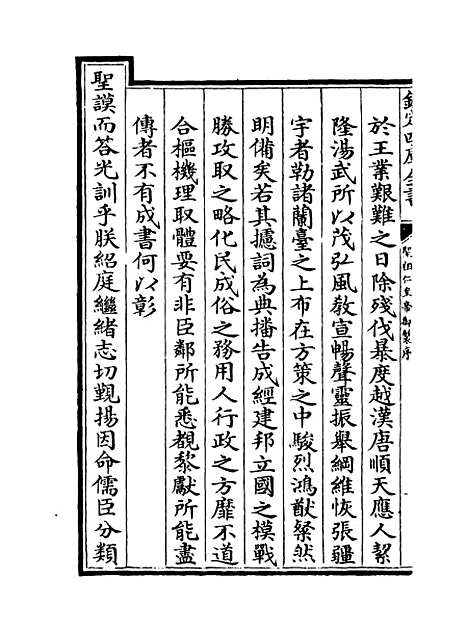 欽定四庫全書
聖祖仁皇帝御製序
於王業艱難之日除殘伐暴度越漢唐順天應人絜
隆湯武所以茂弘風教宣暢聲靈振舉綱維恢張疆
宇者勒諸蘭臺之上布在方策之中駿烈鴻猷粲然
明備矣若其攄詞為典播告成經建邦立國之模戰
勝攻取之略化民成俗之務用人行政之方靡不道
合樞機理取體要有非臣鄰所能悉覩黎獻所能盡
傳者不有成書何以彰
聖謨而答光訓乎朕紹庭繼緒志切覲揚因命儒臣分類